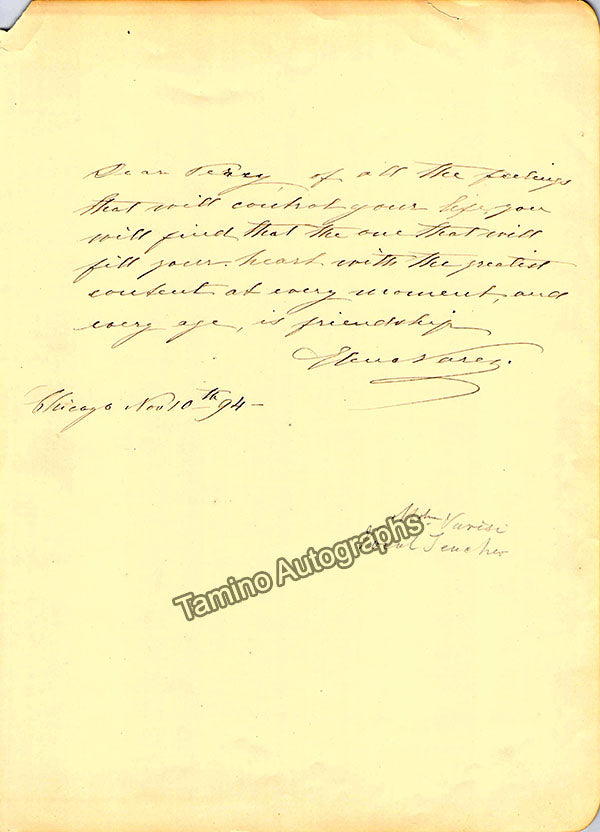 Dear Perry, of all the feelings
that will control your life you
will find that the one that will
fill your heart with the greatest
content at every moment, and
every age, is friendship
Elena Varesi.
Chicago Nov 10th 94 -
Varisi
Vocal Teacher
Tamino Autographs